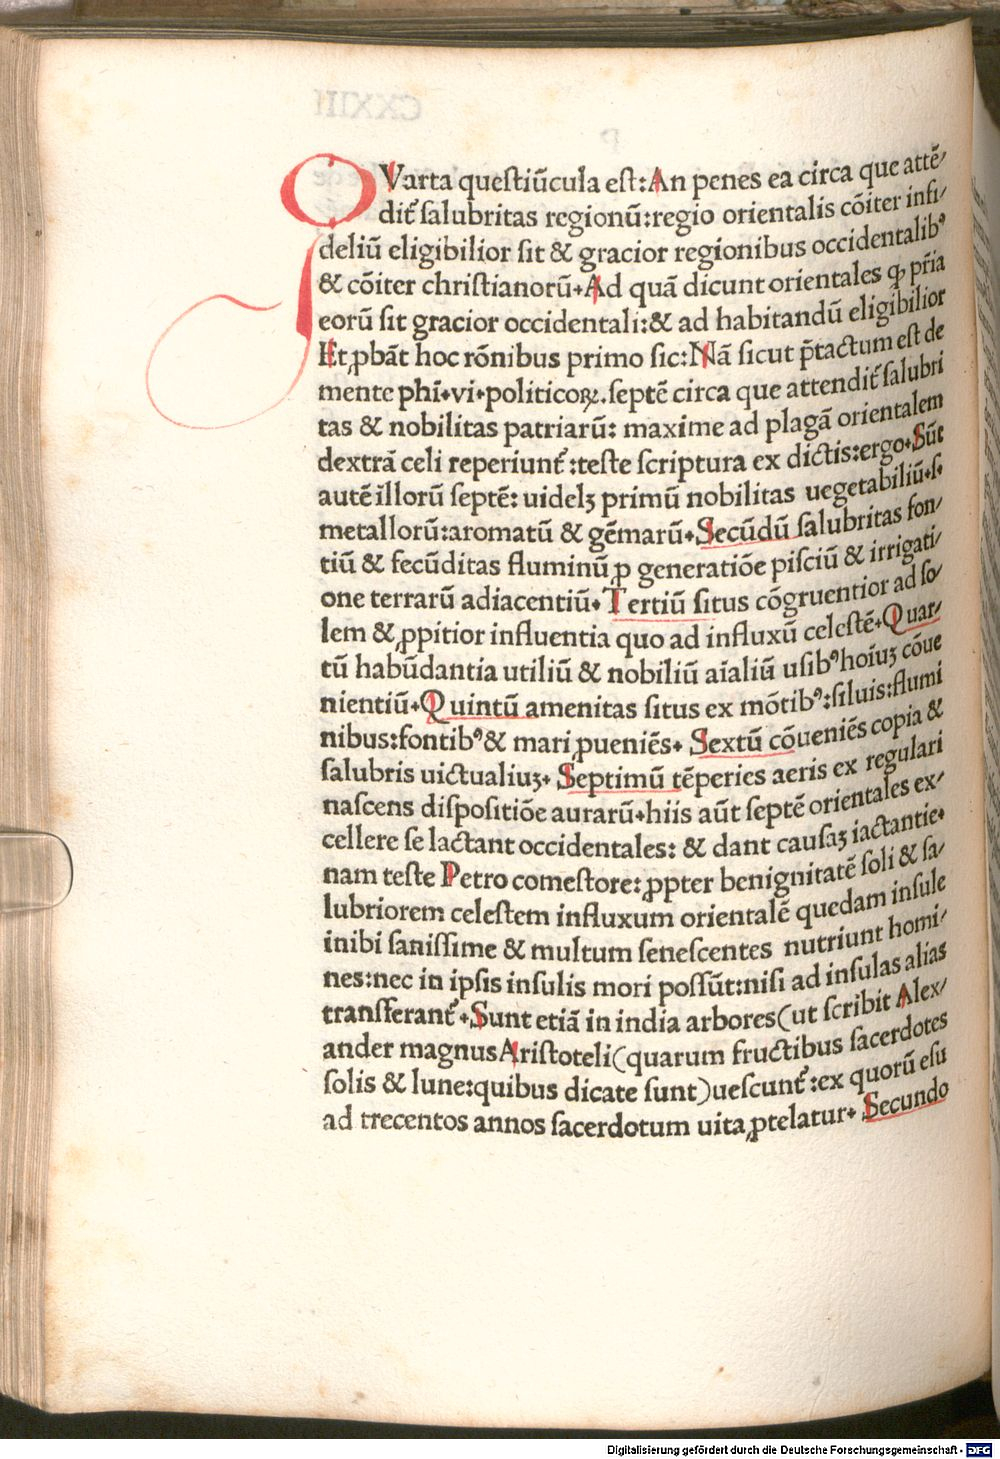 QVarta questiũcula est:An penes ea circa que attẽ/
dit᷑ salubritas regionũ:regio orientalis cõiter infi/
deliũ eligibilior sit & gracior regionibus occidentalibꝰ
& cõiter christianorũ. Ad quã dicunt orientales ꝙ pr̃ia
eorũ sit gracior occidentali:& ad habitandũ eligibilior
Et ꝓbãt hoc rõnibus primo sic:Nã sicut p̃tactum est de
mente phĩ.vi.politicoꝝ.septẽ circa que attendit᷑ salubri
tas & nobilitas patriarũ: maxime ad plagã orientalem
dextrã celi reperiunt᷑:teste scriptura ex dictis:ergo. Sũt
autẽ illorũ septẽ: uidelꝫ primũ nobilitas uegetabiliũ.s.
metallorũ:aromatũ & gẽmarũ. Secũdũ salubritas fon/
tiũ & fecũditas fluminũ ꝑ generatiõe pisciũ & irrigati/
one terrarũ adiacentiũ. Tertiũ situs cõgruentior ad so/
lem & ꝓpitior influentia quo ad influxũ celestẽ. Quar/
tũ habũdantia utiliũ & nobiliũ aĩaliũ usibꝰ hoĩuꝫ cõue
nientiũ. Quintũ amenitas situs ex mõtibꝰ:siluis:flumi
nibus:fontibꝰ & mari ꝓueniẽs. Sextũ cõueniẽs copia &
salubris uictualiuꝫ. Septimũ tẽperies aeris ex regulari
nascens dispositiõe aurarũ. hiis aũt septẽ orientales ex/
cellere se lactant occidentales: & dant causaꝫ iactantie.
nam teste Petro comestore: ꝓpter benignitatẽ soli & sa/
lubriorem celestem influxum orientalẽ quedam insule
inibi sanissime & multum senescentes nutriunt homi/
nes:nec in ipsis insulis mori possũt:nisi ad insulas alias
transferant᷑. Sunt etiã in india arbores(ut scribit Alex/
ander magnus Aristoteli(quarum fructibus sacerdotes
solis & lune:quibus dicate sunt)uescunt᷑:ex quorũ esu
ad trecentos annos sacerdotum uita ꝓtelatur. Secundo
Digitalisierung gefördert durch die Deutsche Forschungsgemeinschaft - DFG